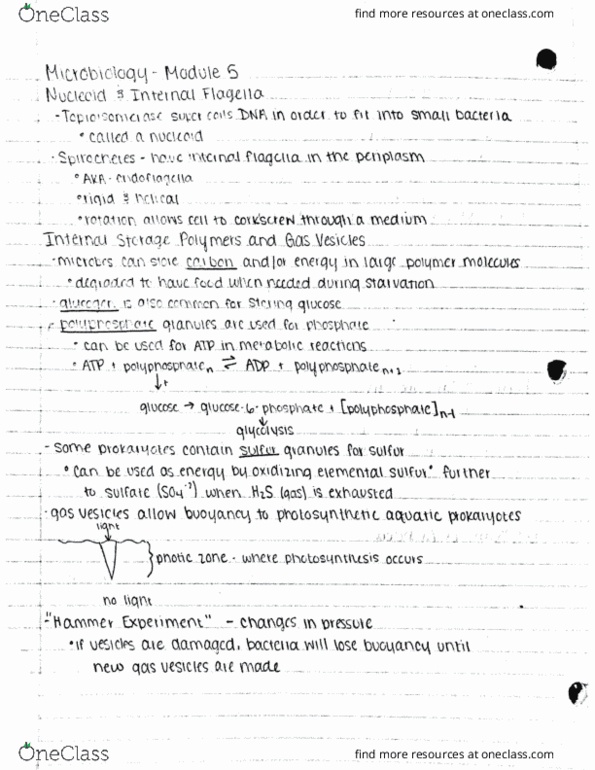 OneClass
find more resources at oneclass.com
Microbiology - Module 5
Nucleoid & Internal Flagella
- Topioisomerase super coils DNA in order to fit into small bacteria
• called a nucleoid
- Spirochetes - have internal flagella in the periplasm
• AKA - endoflagella
• rigid & helical
• rotation allows cell to corkscrew through a medium
Internal Storage Polymers and Gas Vesicles
- microbes can store carbon and/or energy in large polymer molecules
• degraded to have food when needed during starvation
- glycogen is also common for storing glucose
- polyphosphate granules are used for phosphate
• can be used for ATP in metabolic reactions
• ATP + polyphosphate n ⇌ ADP + polyphosphate n+1
↓
glucose → glucose-6-phosphate + [polyphosphate] n-1
↓
glycolysis
- some prokaryotes contain sulfur granules for sulfur
• can be used as energy by oxidizing elemental sulfur° further
to sulfate (SO4⁻²) when H2S (gas) is exhausted
- gas vesicles allow buoyancy to photosynthetic aquatic prokaryotes
light
photic zone - where photosynthesis occurs
no light
- "Hammer Experiment" - changes in pressure
• if vesicles are damaged, bacteria will lose buoyancy until
new gas vesicles are made
OneClass
find more resources at oneclass.com